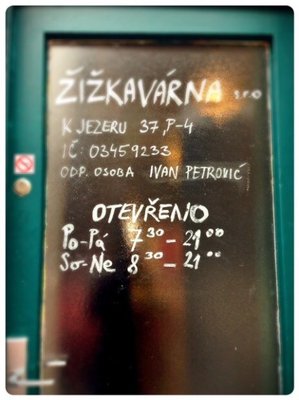 ŽIŽKAVÁRNA s.r.o
K JEZERU 37, P-4
IČ: 03459233
ODP. OSOBA IVAN PETROVIĆ
OTEVŘENO
Po-Pá 7³⁰ - 21⁰⁰
So-Ne 8³⁰ - 21⁰⁰